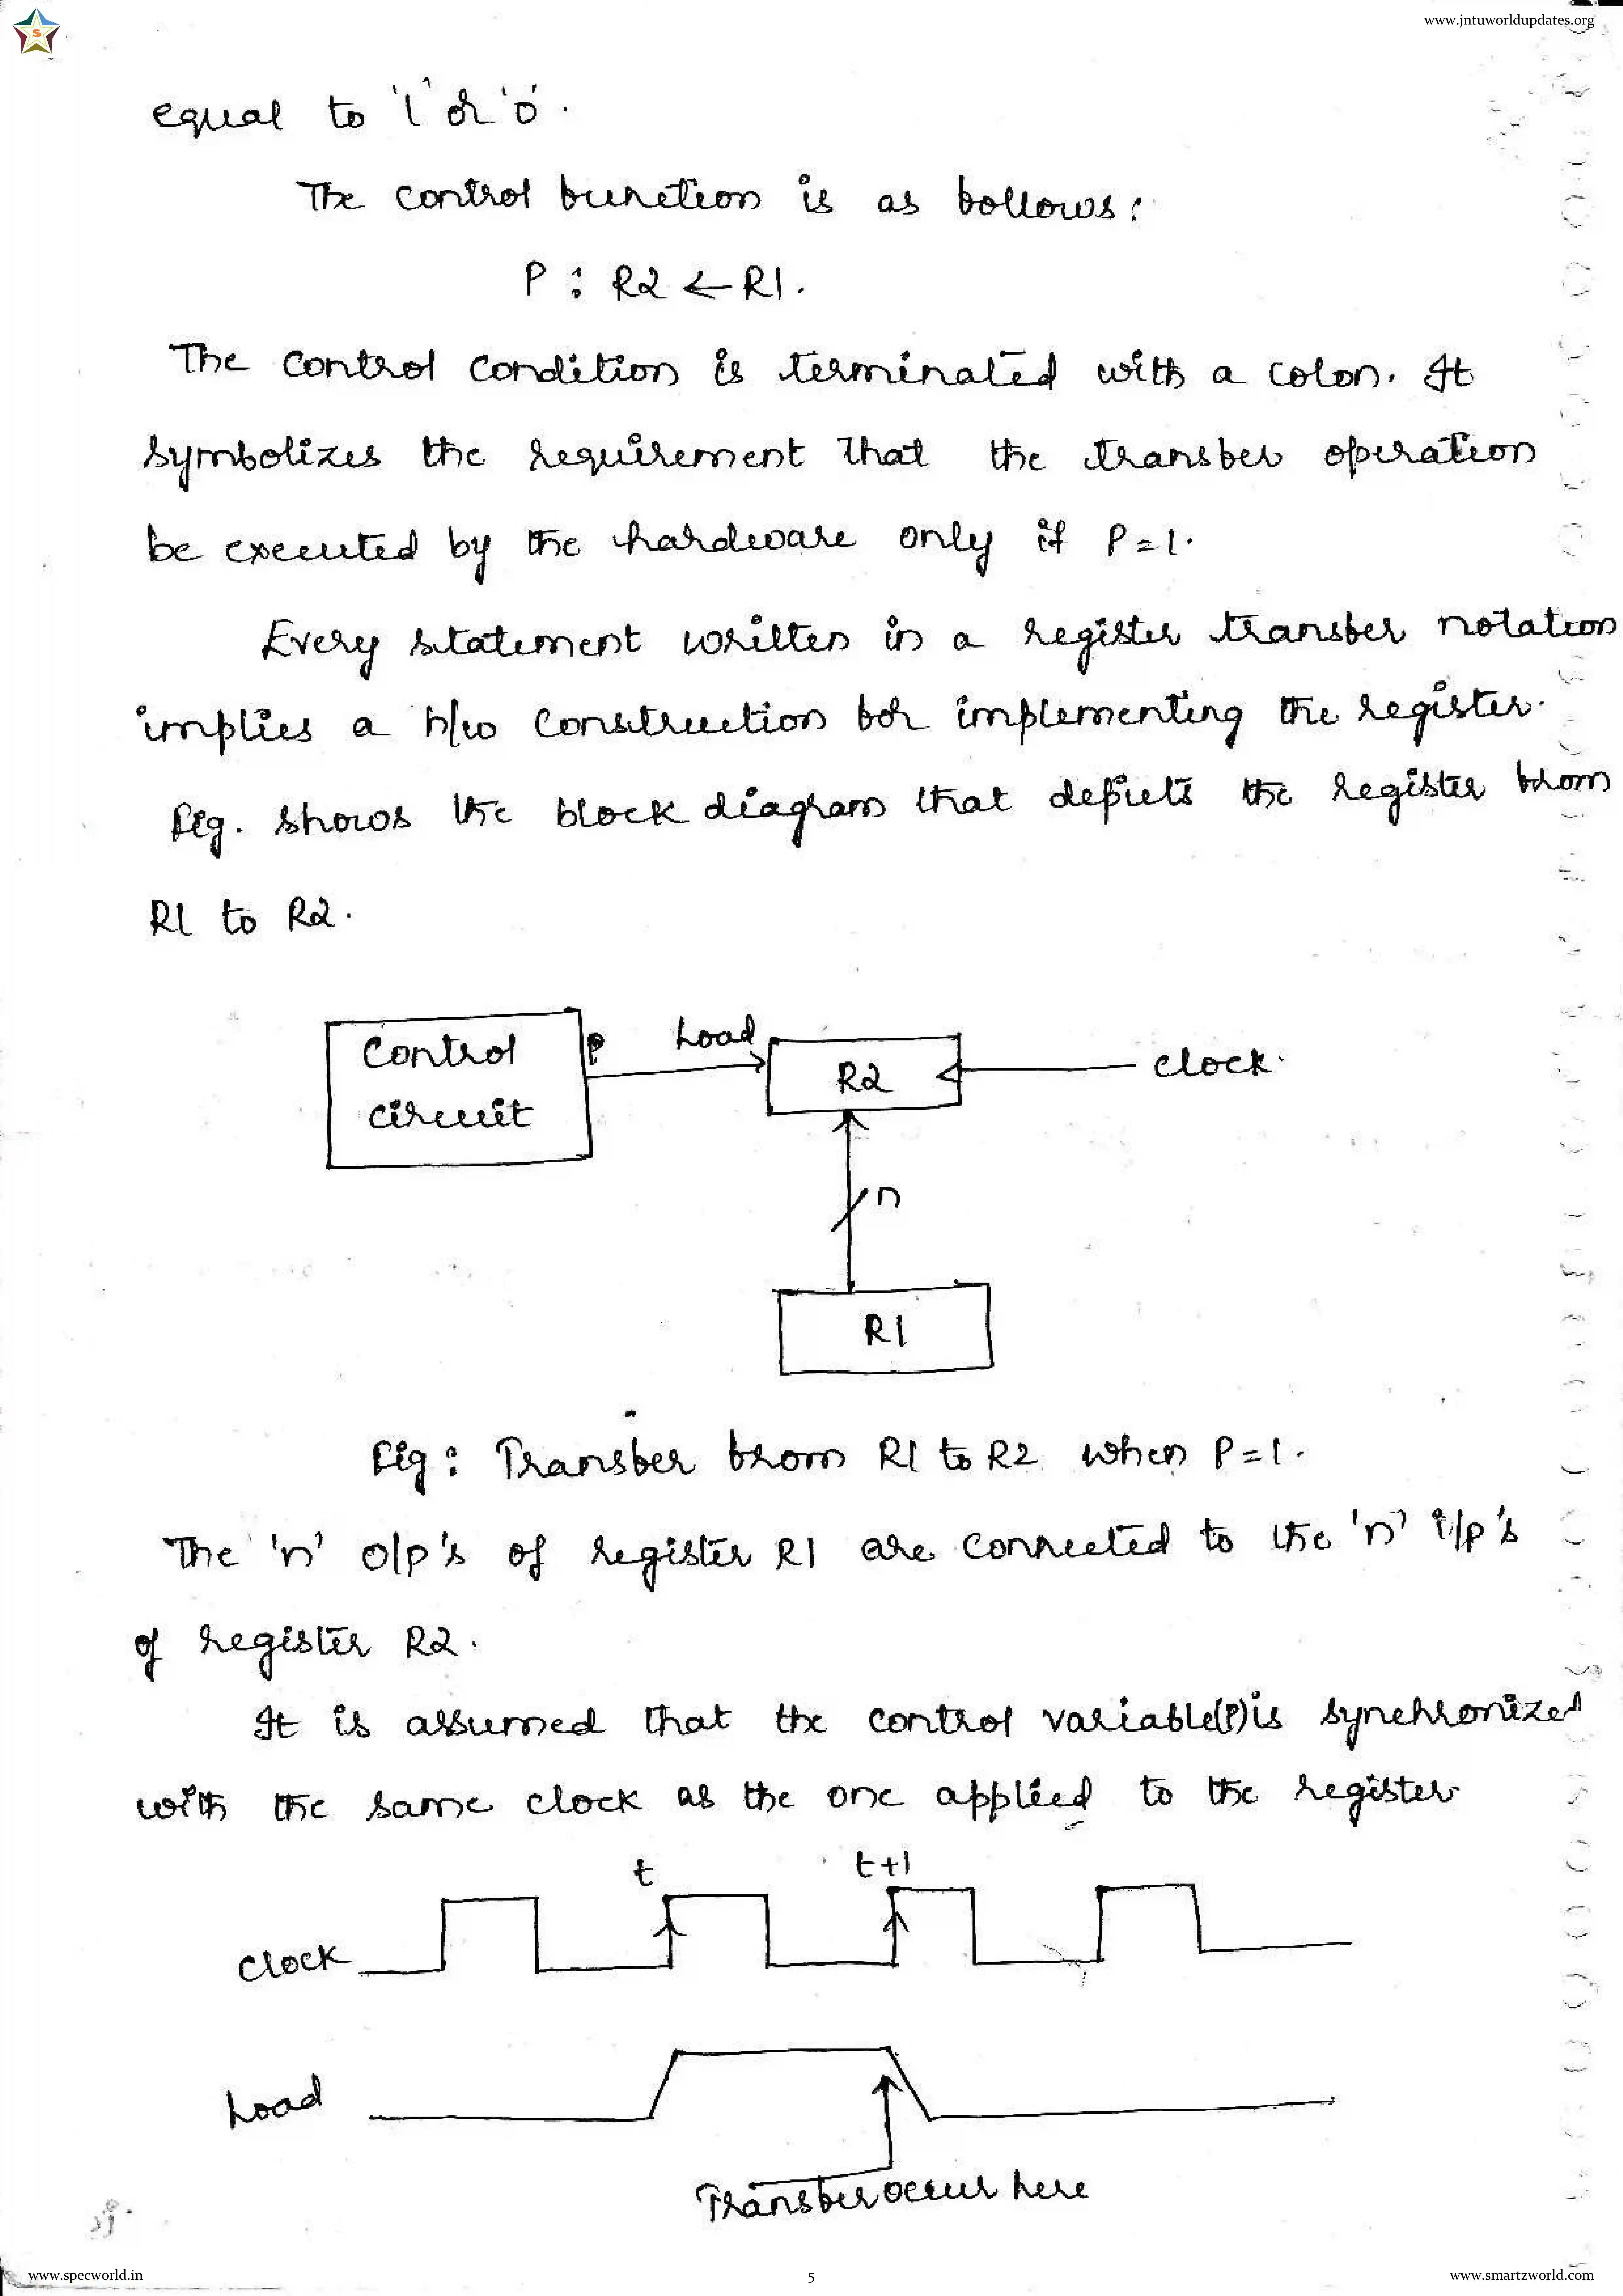 S
www.jntuworldupdates.org
equal to '1' or '0'.
The control function is as follows:
P : R2 ← R1.
The control condition is terminated with a colon. It
symbolizes the requirement that the transfer operation
be executed by the hardware only if P=1.
Every statement written in a register transfer notation
implies a h/w construction for implementing the register.
Fig. shows the block diagram that depicts the register from
R1 to R2.
Control
circuit
P
Load
R2
clock.
n
R1
Fig : Transfer from R1 to R2 when P=1.
The 'n' o/p's of register R1 are connected to the 'n' i/p's
of register R2.
It is assumed that the control variable(P) is synchronized
with the same clock as the one applied to the register
t
t+1
clock
Load
Transfer occur here
www.specworld.in
5
www.smartzworld.com